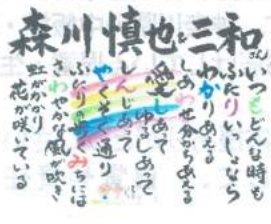 森川慎也と三和さん
いつもどんな時も
ふたりいっしょなら
わかりあえる
しあわせ分からあえる
愛しあって
ゆるしあって
しんじあって
やくそく通り
ふたりの歩くみちには
さわやかな風が吹き
虹がかかり
花が咲いている